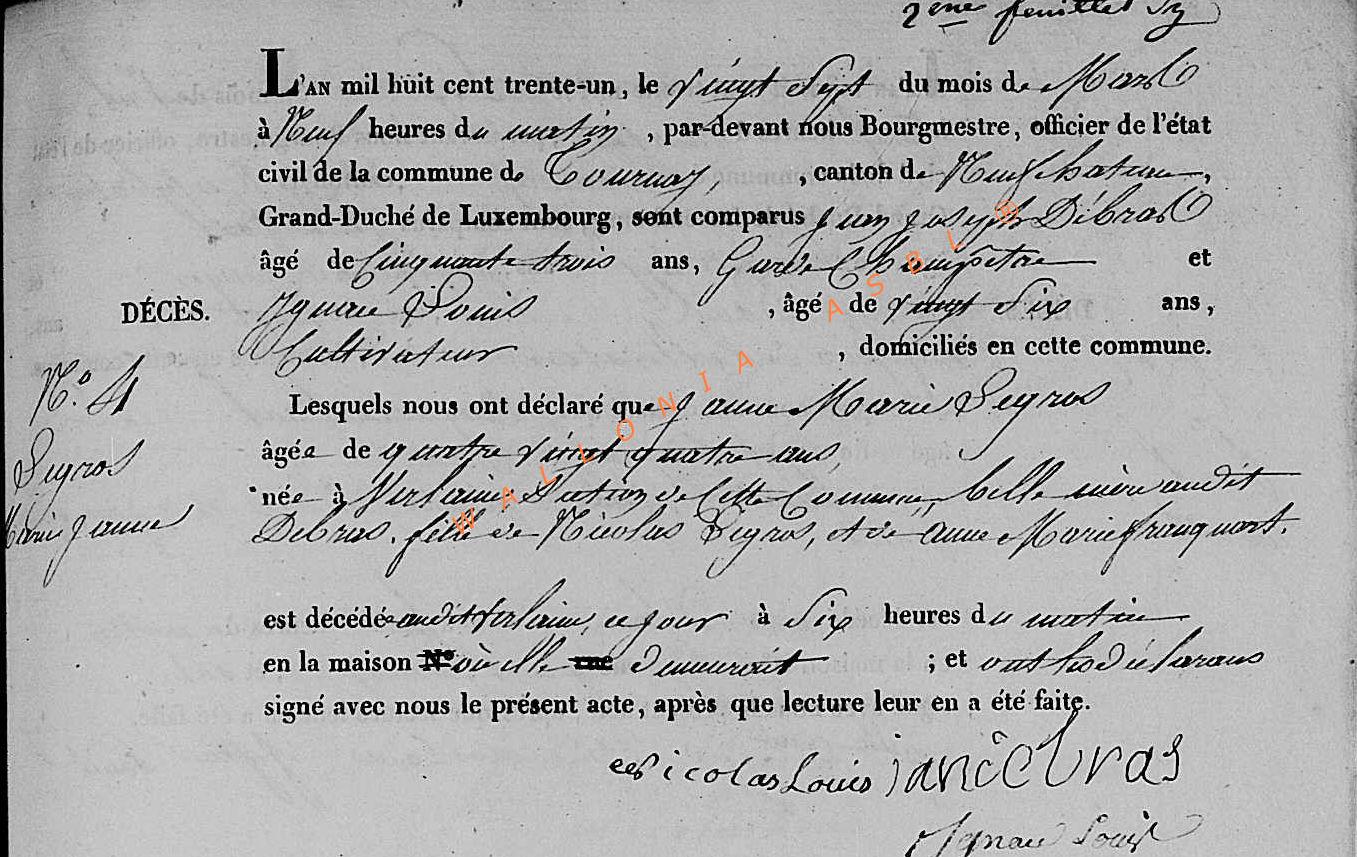 2ème feuillet
L'AN mil huit cent trente-un, le vingt Sept du mois de Mars
à Neuf heures du matin, par-devant nous Bourgmestre, officier de l'état
civil de la commune de Tournay, , canton de Neufchateau,
Grand-Duché de Luxembourg, sont comparus Jean Joseph Débras
âgé de Cinquante trois ans, Garde Champêtre et
DÉCÈS. Ignace Louis , âgé de vingt Six ans,
Cultivateur , domiciliés en cette commune.
N.° 4
Lesquels nous ont déclaré que Janne Marie Legros
âgée de quatre vingt quatre ans,
Legros
née à Verlaine Section de Cette Commune, belle mère audit
Marie Janne
Debras, fille de Nicolas Legros, et de anne Marie franquart.
est décédée audit Verlaine, ce jour à Six heures du matin
en la maison N° où elle rue demeurait ; et ont les déclarans
signé avec nous le présent acte, après que lecture leur en a été faite.
Nicolas Louis
Ignace Louis
WALLONIA ASBL ®